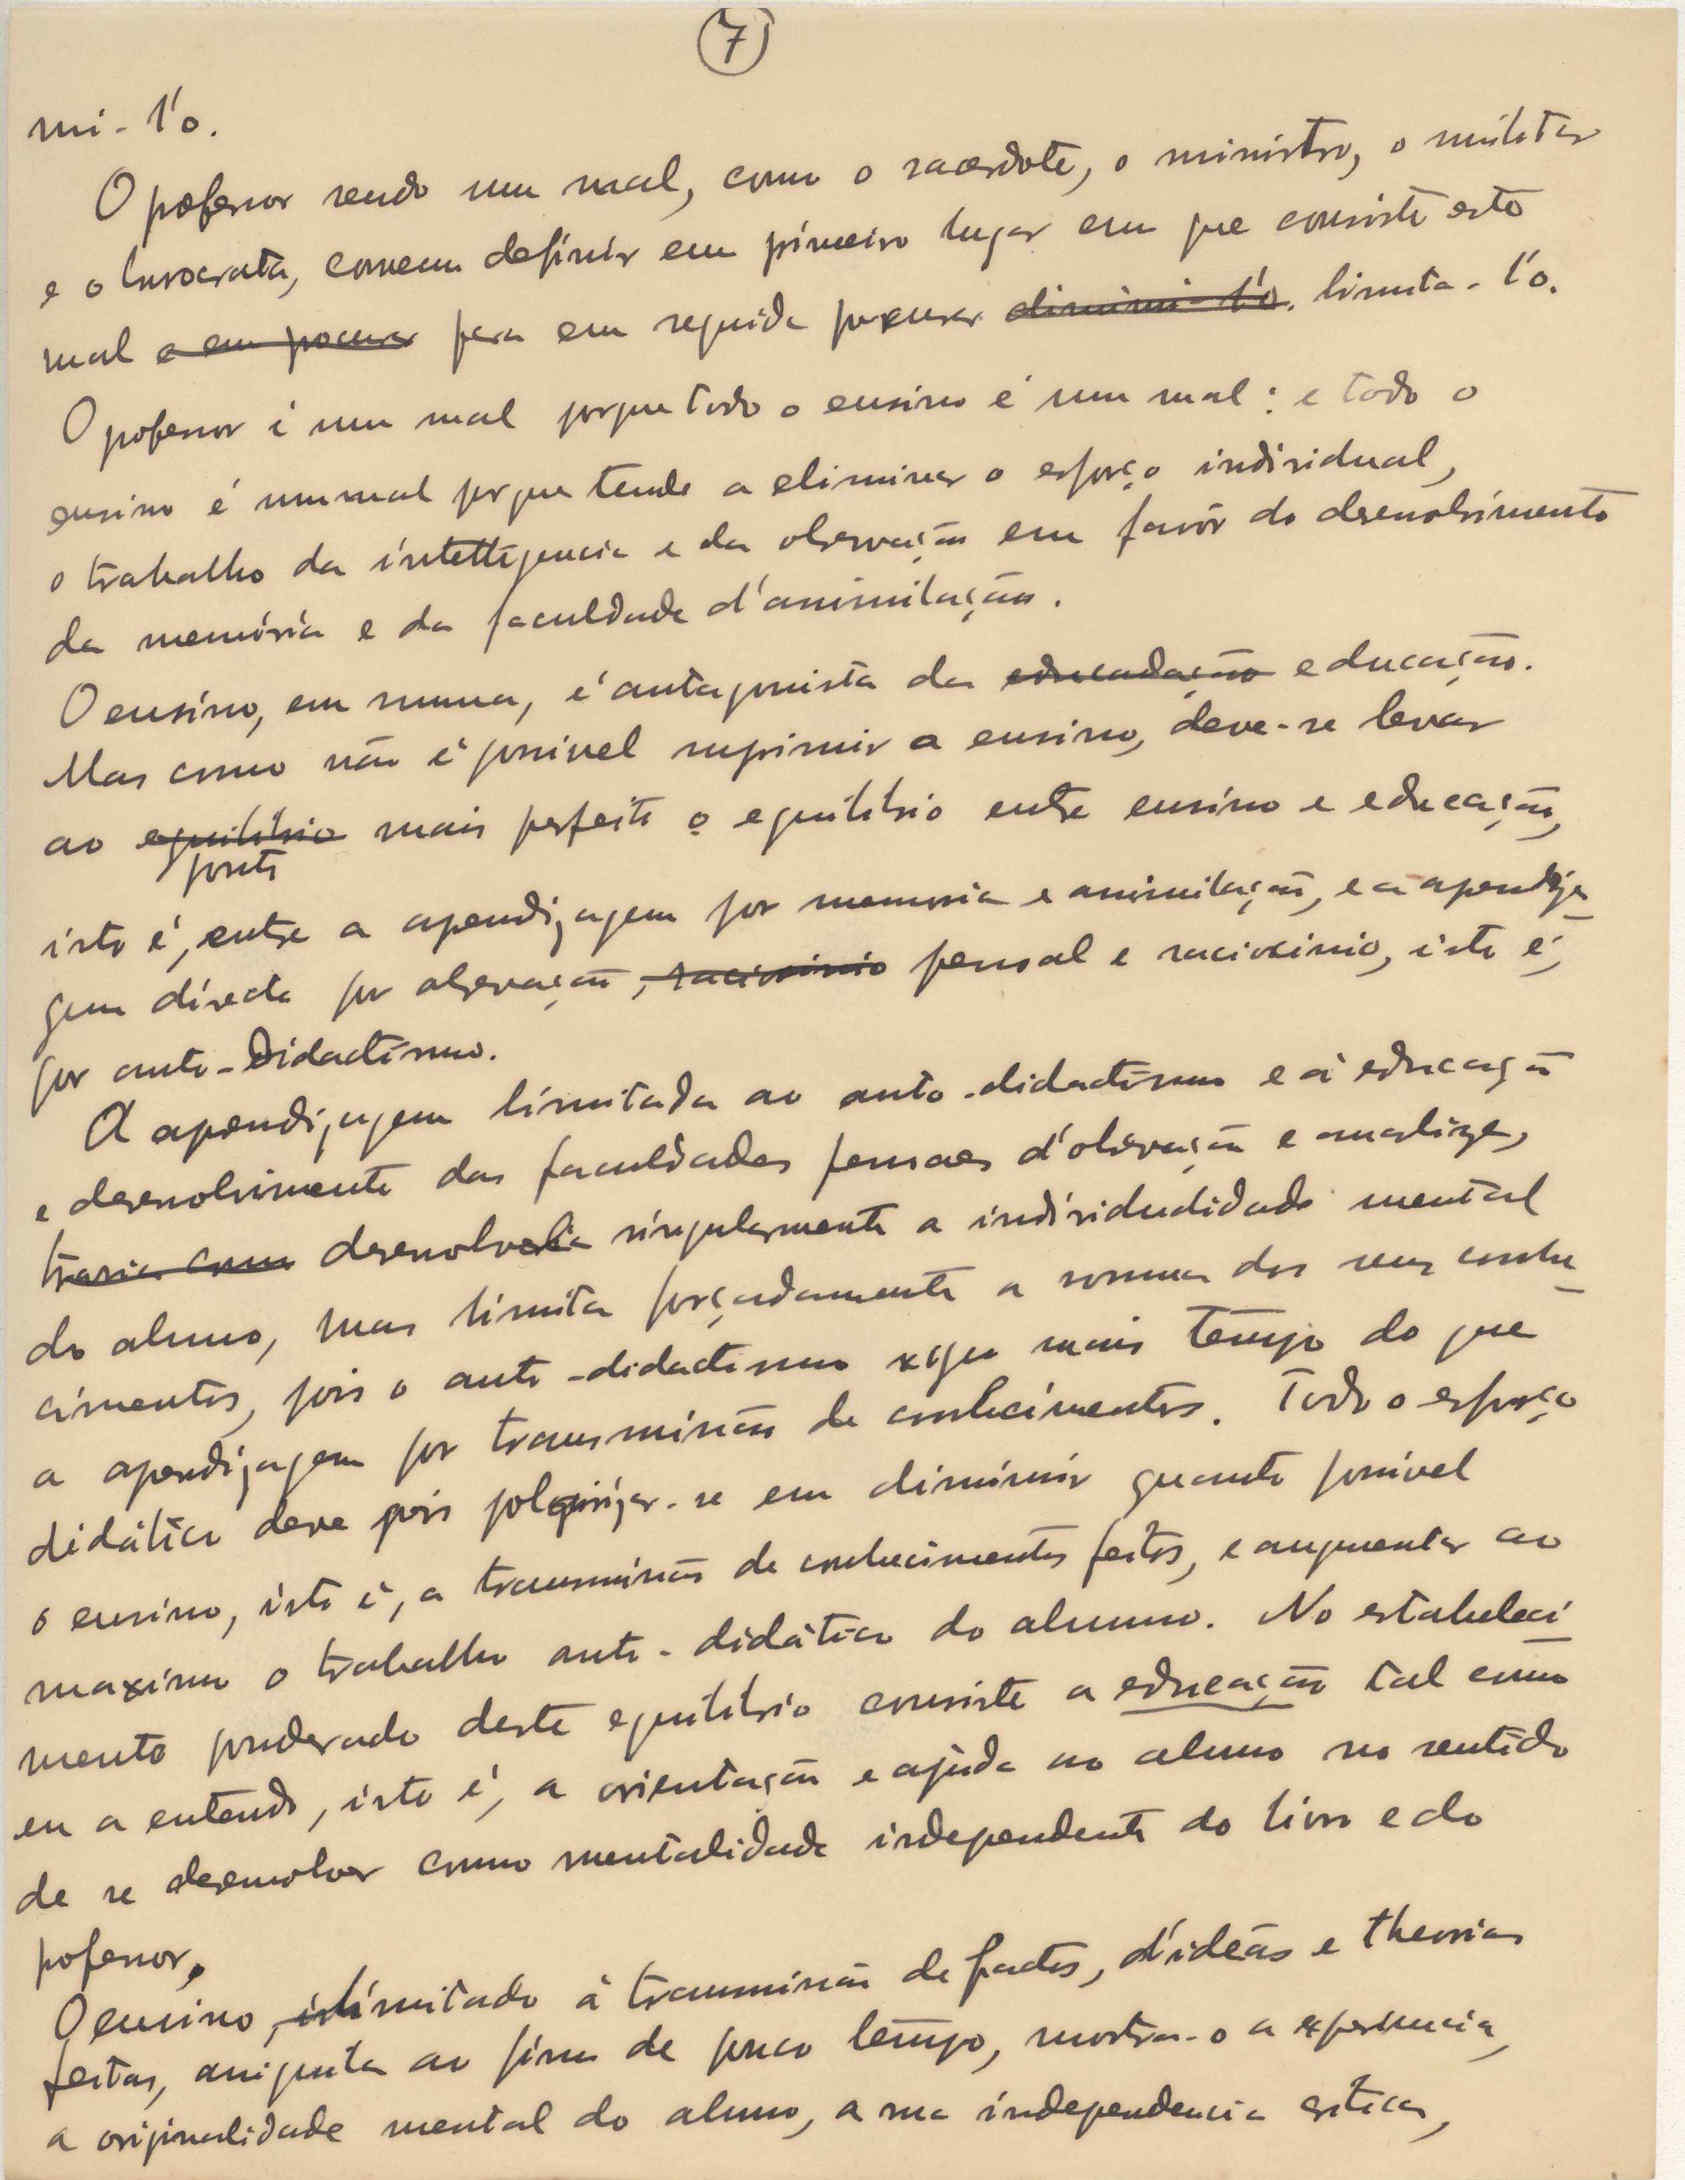 7
mi-l'o.
O professor sendo um mal, como o sacerdote, o ministro, o militar
e o burocrata, convem definir em primeiro lugar em que consiste este
mal e em procurar para em seguida procurar diminui-l'o. limita-l'o.
O professor é um mal porque todo o ensino é um mal: e todo o
ensino é um mal porque tende a eliminar o esforço individual,
o trabalho da intelligencia e da observação em favôr do desenvolvimento
da memória e da faculdade d'assimilação.
O ensino, em summa, é antagonista da educadação educação.
Mas como não é possivel suprimir o ensino, deve-se levar
ao equilibrio mais perfeito o equilibrio entre ensino e educação,
ponto
isto é, entre a aprendizagem por memoria e assimilação, e a aprendiza-
gem directa por observação, raciocinio pessoal e raciocinio, isto é,
por auto-didactismo.
A aprendizagem limitada ao auto-didactismo e á educação
e desenvolvimento das faculdades pessoaes d'observação e analize,
traria como desenvolveria singularmente a individualidade mental
do aluno, mas limita forçadamente a somma dos seus conhe-
cimentos, pois o auto-didactismo exige mais tempo do que
a aprendizagem por transmissão de conhecimentos. Todo o esforço
didático deve pois polarizar-se em diminuir quanto possivel
o ensino, isto é, a transmissão de conhecimentos feitos, e augmentar ao
maximo o trabalho auto-didático do alumno. No estabeleci-
mento ponderado deste equilibrio consiste a educação tal como
eu a entendo, isto é, a orientação e ajuda ao aluno no sentido
de se desenvolver como mentalidade independente do livro e do
professor.
O ensino, limitado á transmissão de factos, d'ideas e theorias
feitas, aniquila ao fim de pouco tempo, mostra-o a experiencia,
a originalidade mental do aluno, a sua independencia critica,